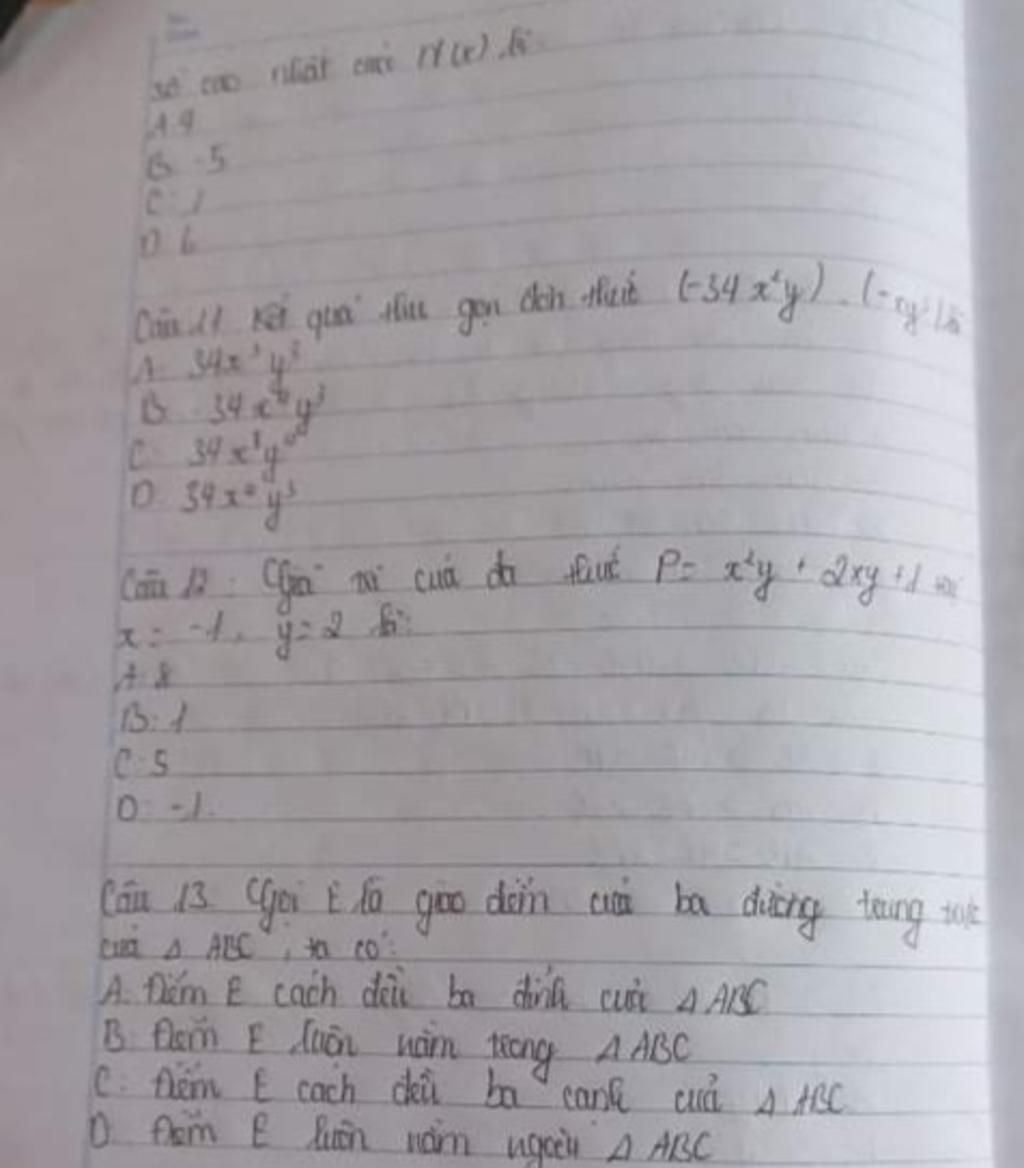 số cao nhất của
A. 9
B. -5
C. 1
D. 6
Câu 11 Kết quả thu gọn đơn thức (-34x²y). (-xy là
A. 34x³y³
B. -34x y³
C. 34x³y
D. 34x y³
Câu 12: Giá trị của đa thức P= x²y + 2xy +1 với
x = -1, y = 2 là:
A. 8
B. 1
C. 5
D. -1.
Câu 13. Gọi E là giao điểm của ba đường trung trực
của Δ ABC, ta có:
A. Điểm E cách đều ba đỉnh của Δ ABC
B. Điểm E luôn nằm trong Δ ABC
C. Điểm E cách đều ba cạnh của Δ ABC
D. Điểm E luôn nằm ngoài Δ ABC